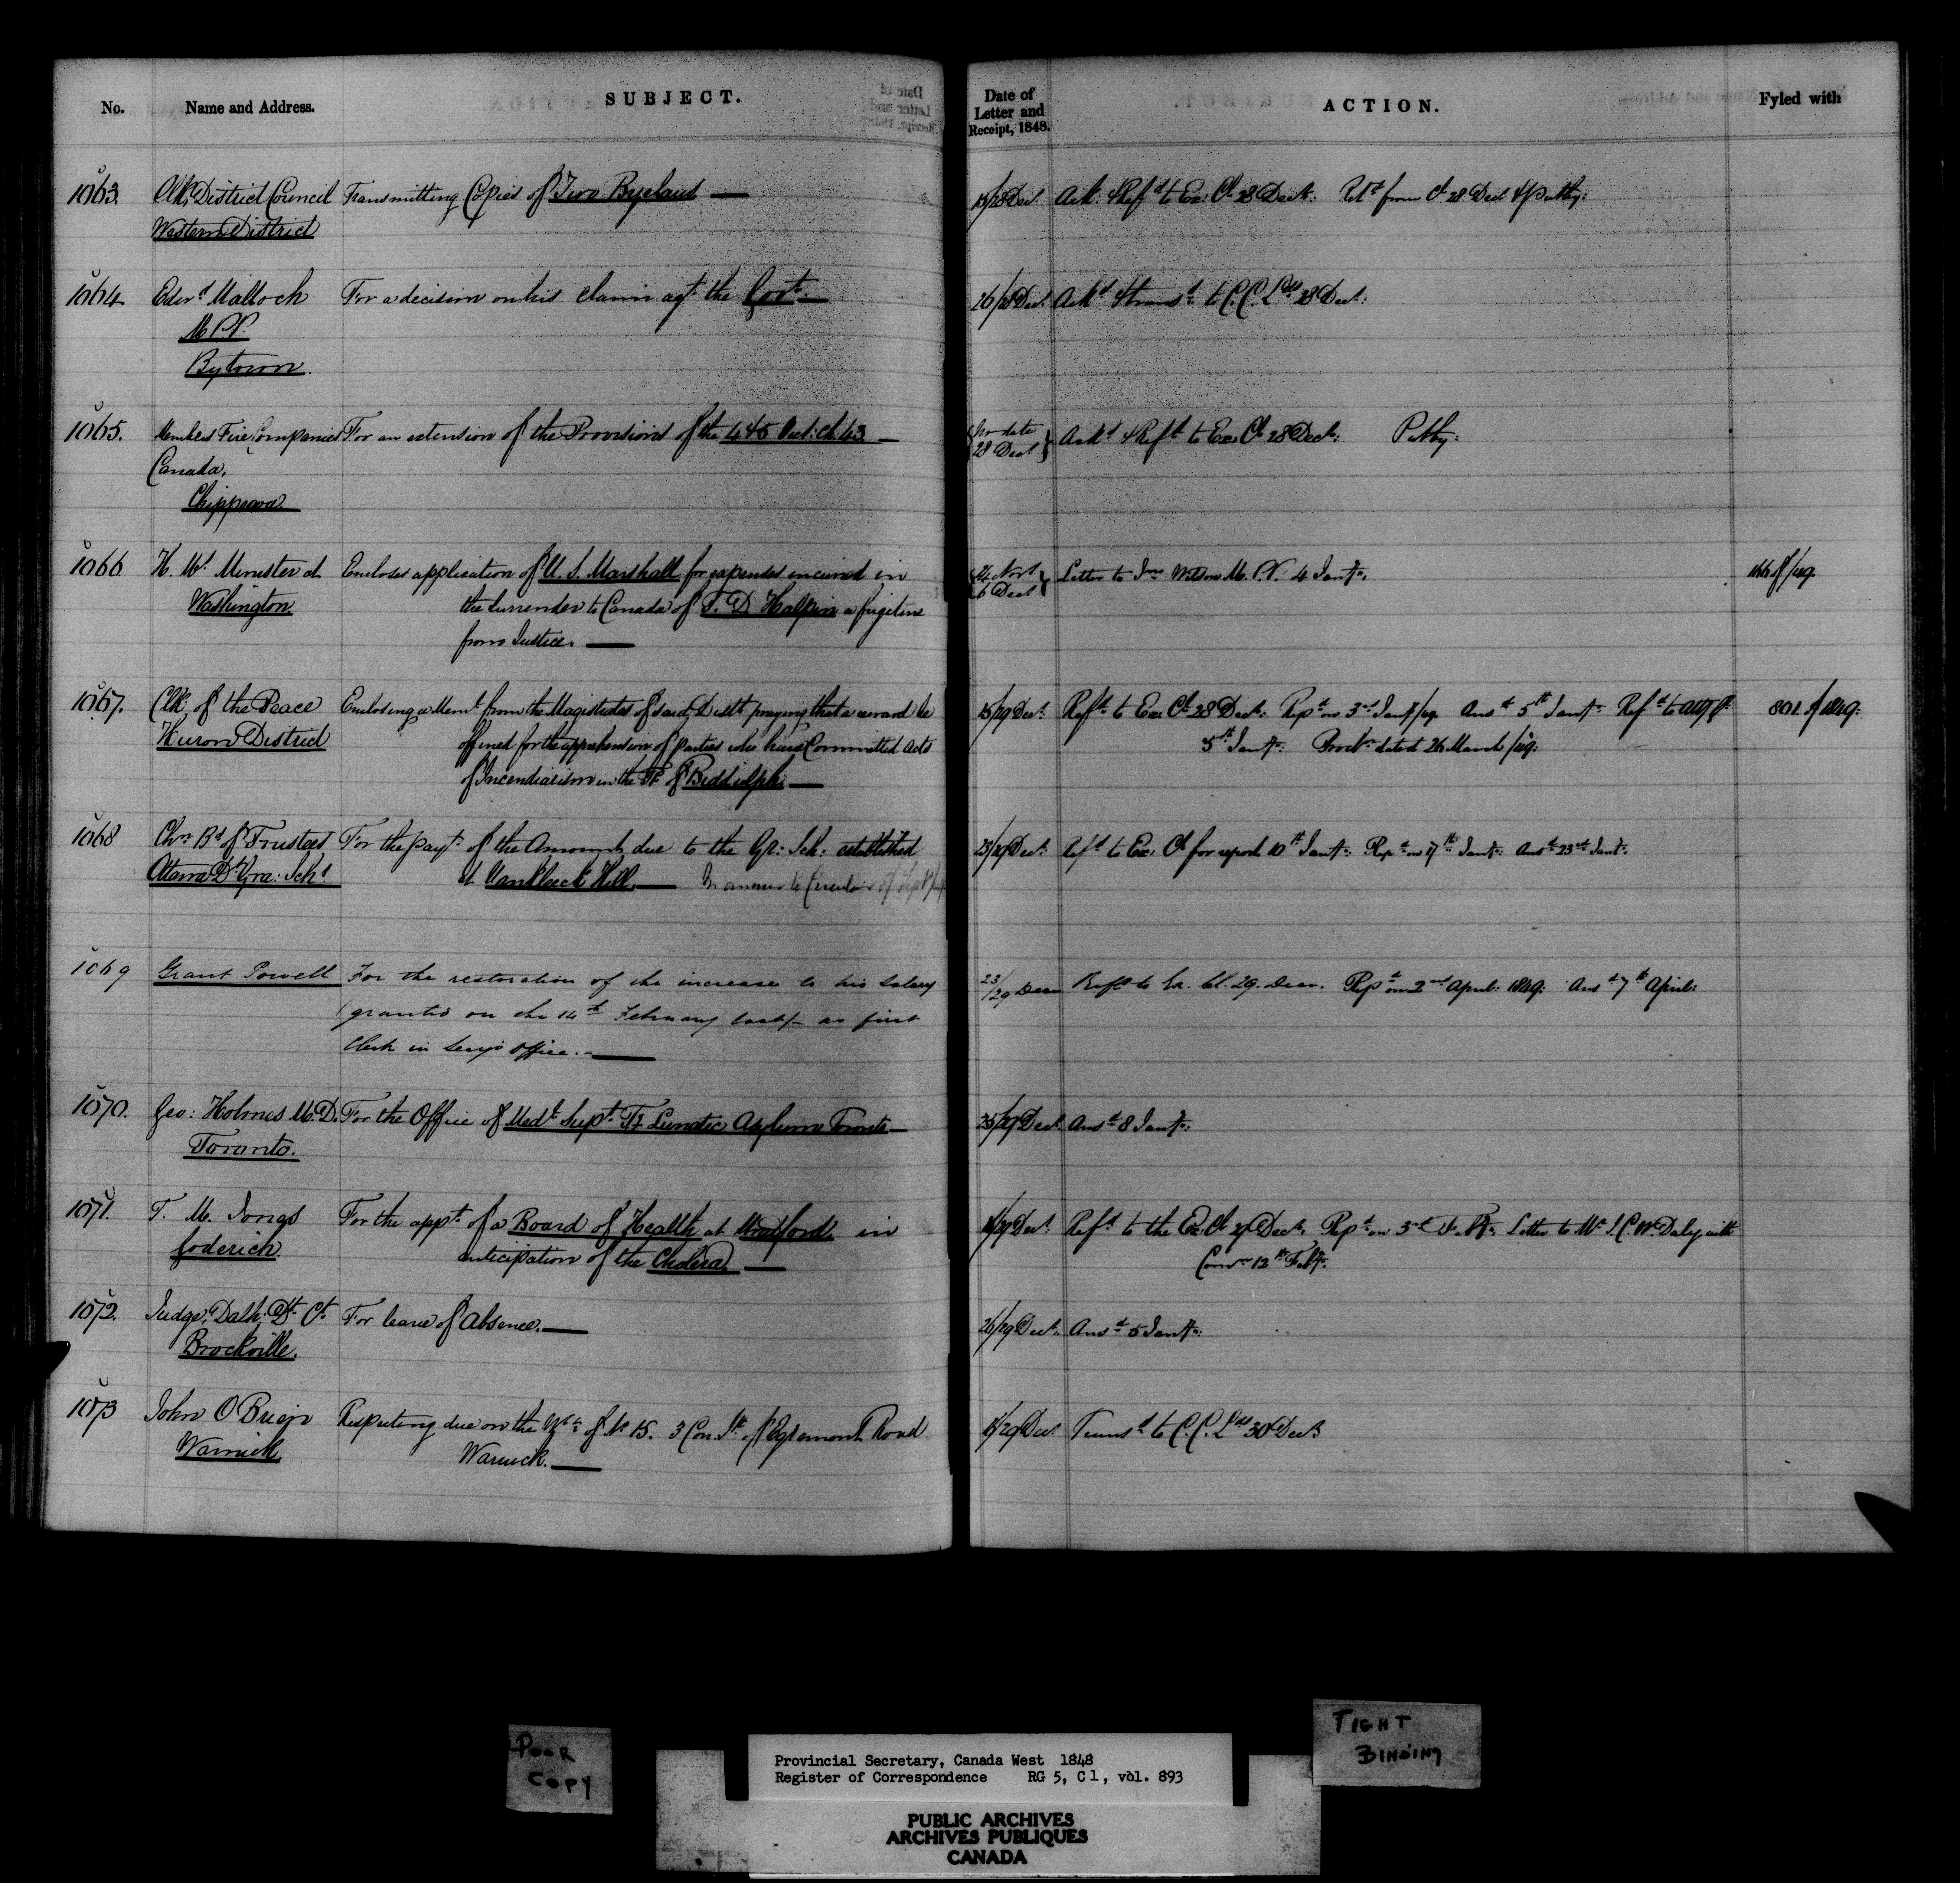 No.
Name and Address.
SUBJECT.
Date of
Letter and
Receipt, 1848.
ACTION.
Fyled with
1063.
Clk. District Council
Western District
Transmitting Copies of Two Byelaws —
28 Dec.
Ack: & Refd to Ex: Cl 28 Decr: Retd from Cl 28 Dec
1064
Edwd Malloch
M.P.P.
Bytown.
For a decision on his claim agt. the Govt. —
26/28 Decr.
Ackd & transd to C.C. Lds 28 Decr.
1065.
Members Fire Companies
Canada,
Chippewa
For an extension of the Provisions of the 4 & 5 Vict: ch. 43 —
No date
28 Decr
Ackd & Refd to Ex. Cl 28 Decr.
1066
H. M's Minister at
Washington
Encloses application of U. S. Marshall for expenses incurred in
the surrender to Canada of T. D Halpin a fugitive
from Justice. —
Novr
6 Decr
Letter to Jno Wilson M.P.P. 4 Jany.
1067.
Clk. of the Peace
Huron District
Enclosing a Meml. from the Magistrates of said Distt praying that a reward be
offered for the apprehension of parties who have Committed Acts
of Incendiarism in the Tp. of Biddulph. —
29 Decr.
Refd to Ex Cl 28 Decr. Repd on 3rd Jany/49 Ansd 5th Jany. Refd to Atty Gl
5th Jany. Procln dated 26 March/49.
801. of 1849.
1068
Chn Bd of Trustees
Ottawa Dt Gra: Schl
For the payt. of the Amount due to the Gr: Sch: established
at Vankleeck Hill. — In answer to Circular of Septr
23/29 Decr.
Refd to Ex: Cl for report 10th Jany. Repd on 17th Jany. Ansd 23rd Jany.
1069
Grant Powell
For the restoration of the increase to his salary
granted on the 14th February last/ as first
Clerk in Secy's Office. —
23/29 Decr
Refd to Ex. Cl. 29. Decr. Repd on 2nd April: 1849. Ansd 7th April:
1070.
Geo: Holmes M.D.
Toronto.
For the Office of Medl Supt Ty Lunatic Asylum Toronto —
29 Decr
Ansd 8 Jany.
1071.
T. M. Jones
Goderich
For the appt. of a Board of Health at Stratford, in
anticipation of the Cholera —
29 Decr.
Refd to the Ex. Cl 29 Decr. Repd on 3rd Feby. Letter to Mr J. C. W. Daly with
Comn 12th Feby.
1072.
Judge, Dalh: Dt. Ct.
Brockville.
For leave of Absence. —
26/29 Decr.
Ansd 5 Jany.
1073
John O Brien
Warwick
Respecting due on the of No 15. 3 Con. Sth of Egremont Road
Warwick. —
29 Decr
Transd to C.C. Lds 30 Decr
POOR
COPY
Provincial Secretary, Canada West 1848
Register of Correspondence RG 5, C 1, vol. 893
TIGHT
BINDING
PUBLIC ARCHIVES
ARCHIVES PUBLIQUES
CANADA